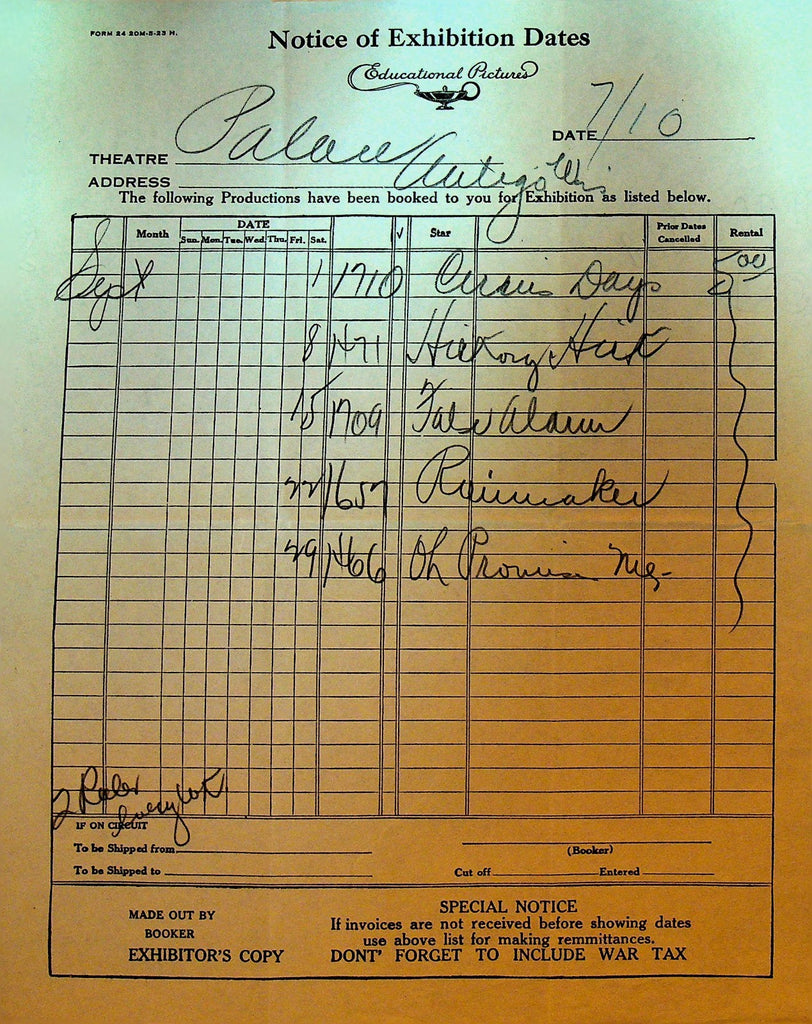 FORM 24 20M-5-23 H.
Notice of Exhibition Dates
Educational Pictures
DATE 7/10
THEATRE Palace
ADDRESS Antigo Wis
The following Productions have been booked to you for Exhibition as listed below.
Month DATE √ Star Prior Dates Cancelled Rental
Sun. Mon. Tue. Wed. Thu. Fri. Sat.
Sept 1 1710 Circus Days 5.00
8 1471 Hickory Hick
15 1709 False Alarm
22 1657 Rainmaker
29 1466 Oh Promise Me-
2 Reeler
every wk
IF ON CIRCUIT
To be Shipped from
(Booker)
To be Shipped to Cut off Entered
MADE OUT BY
BOOKER
EXHIBITOR'S COPY
SPECIAL NOTICE
If invoices are not received before showing dates
use above list for making remmittances.
DONT' FORGET TO INCLUDE WAR TAX